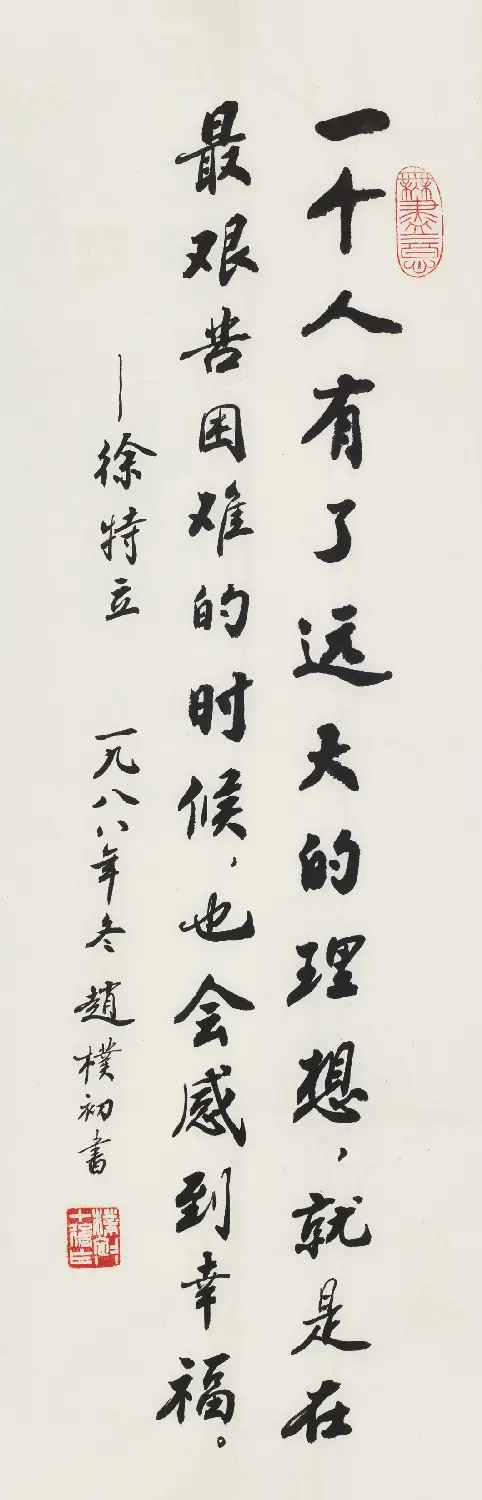 無盡意
一个人有了远大的理想，就是在
最艰苦困难的时候，也会感到幸福。
—徐特立 一九八八年冬 趙樸初書